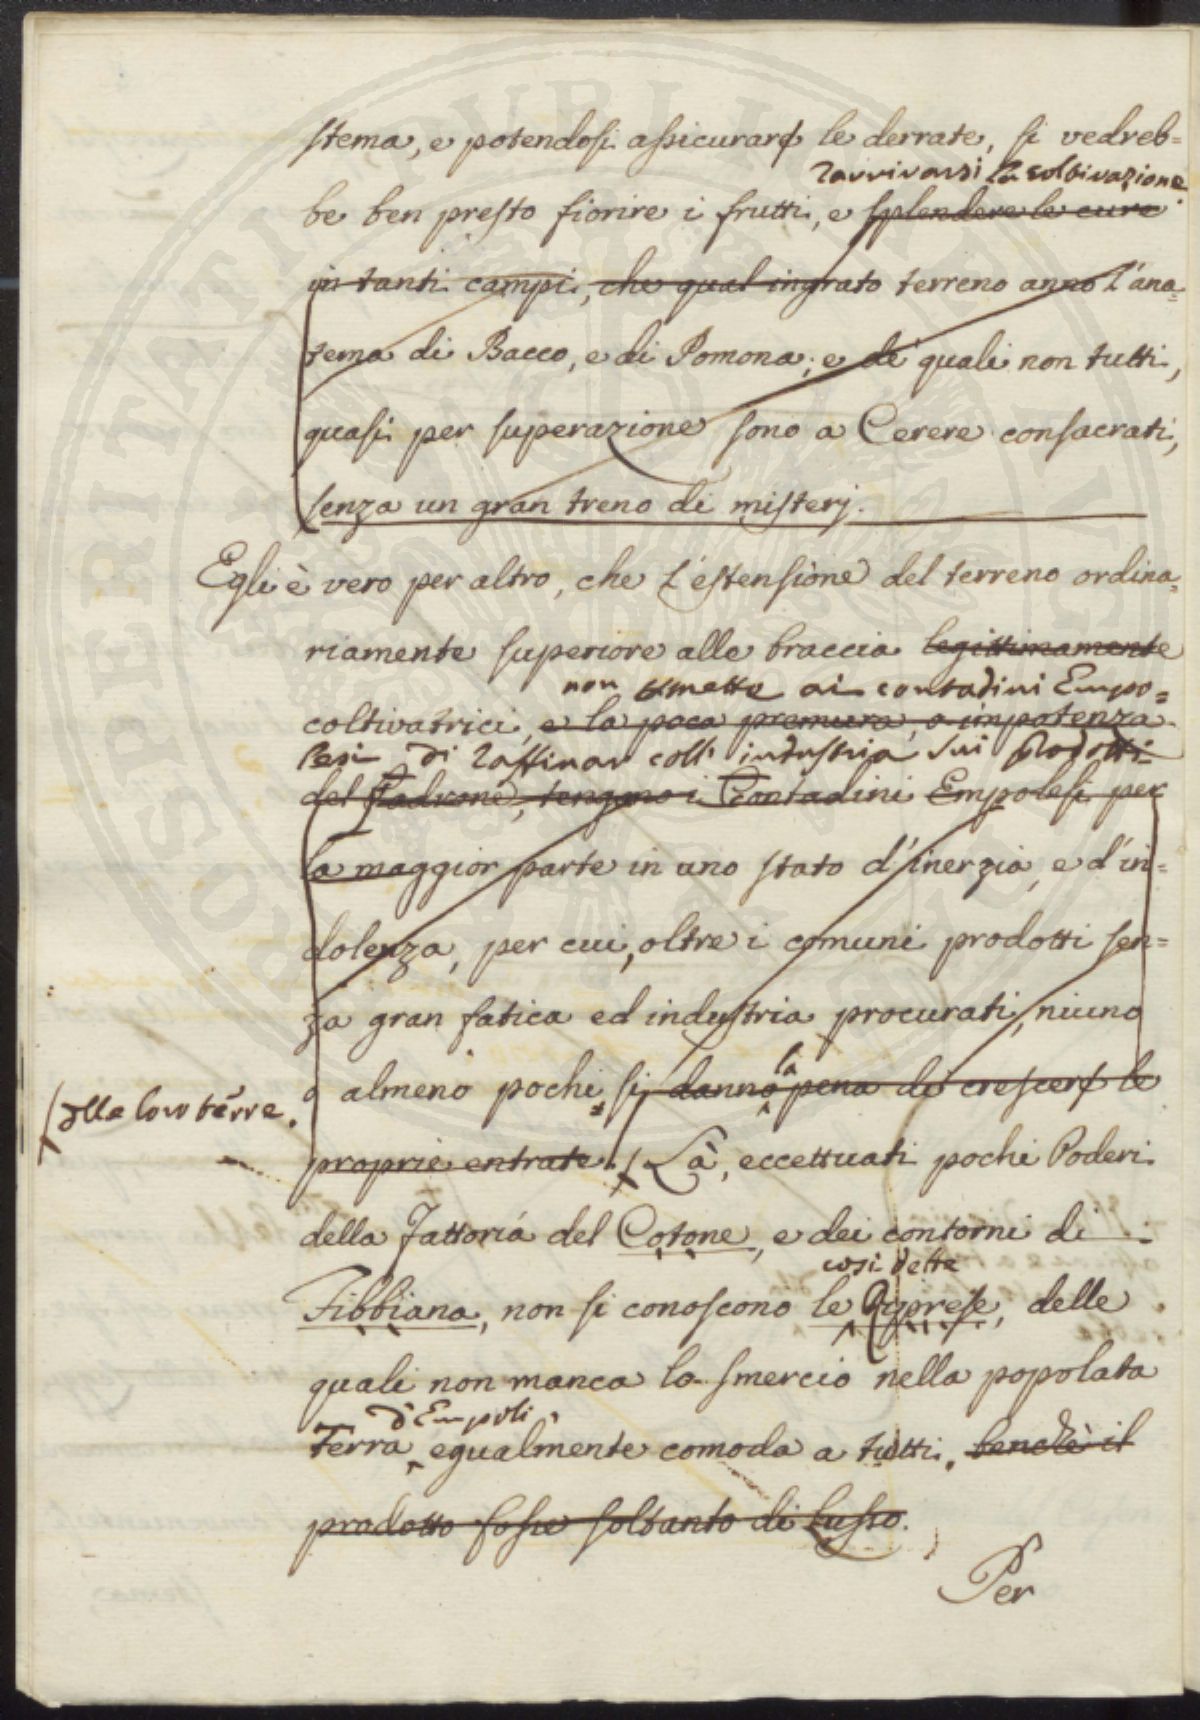 stema, e potendosi assicurare le derrate, si vedreb=
ravvivarsi la coltivazione
be ben presto fiorire i frutti, e splendere le cure
in tanti campi, che qual ingrato terreno anno l'ana=
tema di Bacco, e di Pomona; e de' quali non tutti,
quasi per superazione sono a Cerere consacrati,
senza un gran treno di misterj.
Egli è vero per altro, che l'estensione del terreno ordina=
riamente superiore alle braccia legittimamente
non ai contadini Empo=
coltivatrici, e la poca premura, o impotenza
lesi di raffinar coll' industria sui Prodotti
del Padrone, tengano i Contadini Empolesi per
la maggior parte in uno stato d'inerzia, e d'in=
dolenza, per cui, oltre i comuni prodotti sen=
za gran fatica ed industria procurati, niuno
o almeno pochi si danno la pena di crescere le
delle loro terre.
proprie entrate. Là, eccettuati pochi Poderi
della Fattoria del Cotone, e dei contorni di
così dette
Fibbiana, non si conoscono le Riprese, delle
quali non manca lo smercio nella popolata
d'Empoli
Terra, egualmente comoda a tutti, benchè il
prodotto fosse soltanto di Lusso.
Per